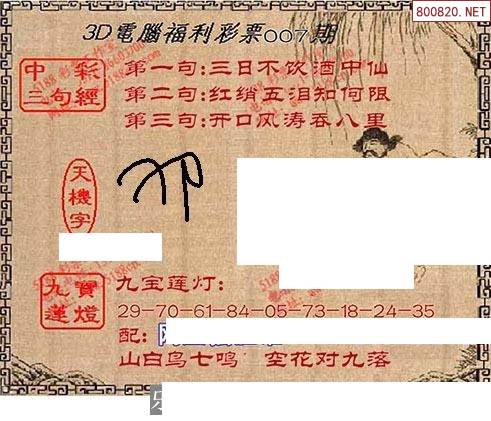 800820.NET
3D電腦福利彩票007期
中彩
三句經
第一句:三日不饮酒中仙
第二句:红绡五泪知何限
第三句:开口风涛吞八里
天機字
九寶
蓮燈
九宝莲灯:
29-70-61-84-05-73-18-24-35
配:
山白鸟七鸣 空花对九落